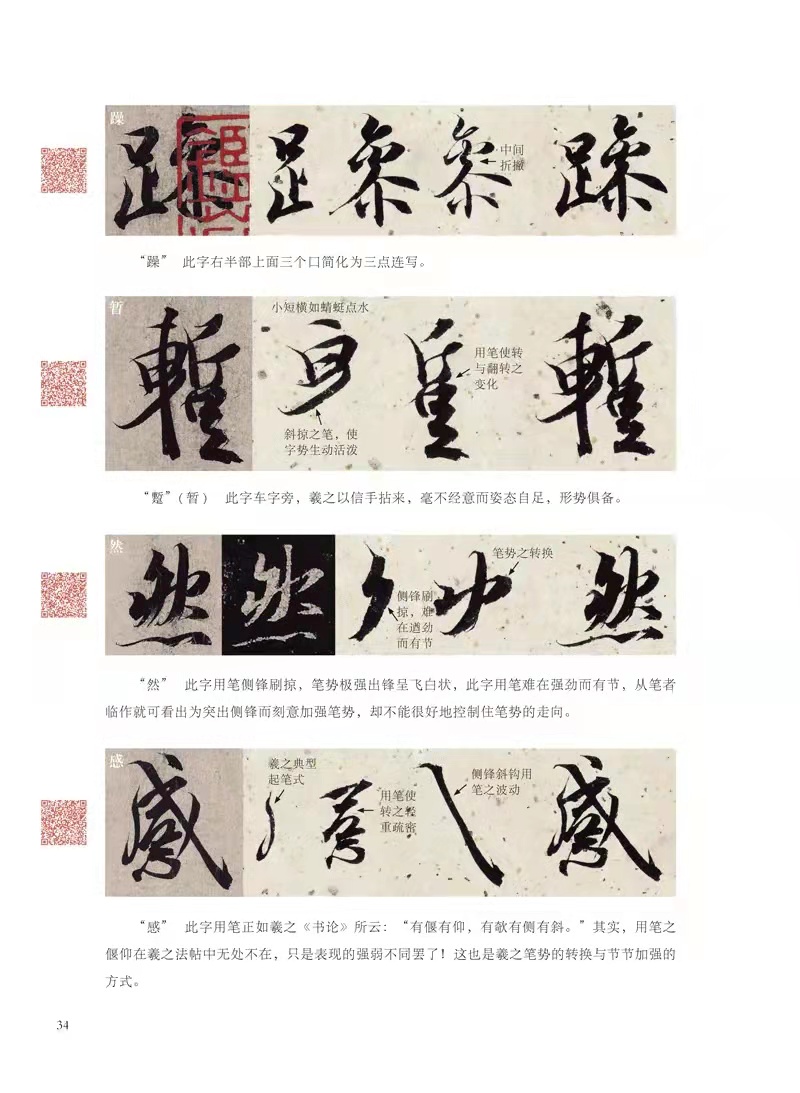 躁
中间
折撇
“躁” 此字右半部上面三个口简化为三点连写。
暂
小短横如蜻蜓点水
斜掠之笔，使
字势生动活泼
用笔使转
与翻转之
变化
“蹔”（暂） 此字车字旁，羲之以信手拈来，毫不经意而姿态自足，形势俱备。
然
侧锋刷
掠，难
在遒劲
而有节
笔势之转换
“然” 此字用笔侧锋刷掠，笔势极强出锋呈飞白状，此字用笔难在强劲而有节，从笔者
临作就可看出为突出侧锋而刻意加强笔势，却不能很好地控制住笔势的走向。
感
羲之典型
起笔式
用笔使
转之轻
重疏密
侧锋斜钩用
笔之波动
“感” 此字用笔正如羲之《书论》所云：“有偃有仰，有欹有侧有斜。”其实，用笔之
偃仰在羲之法帖中无处不在，只是表现的强弱不同罢了！这也是羲之笔势的转换与节节加强的
方式。
34